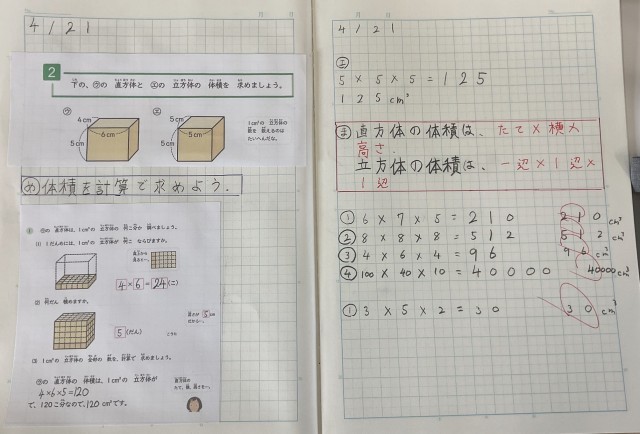 4/21
2
下の、㋒の 直方体と ㋓の 立方体の 体積を 求めましょう。
㋒
4cm
6cm
5cm
㋓
5cm
5cm
5cm
1cm³の 立方体の
数を 数えるのは
たいへんだな。
め 体積を計算で求めよう。
㋒の 直方体は、1cm³の 立方体の 何こ分か 調べましょう。
(1) 1だんめには、1cm³の 立方体が 何こ ならびますか。
4×6=24(こ)
(2) 何だん 積めますか。
高さが 5cm
だから…。
5(だん)
(3) 1cm³の 立方体の 全部の 数を、計算で 求めましょう。
㋒の 直方体の 体積は、1cm³の 立方体が
4×6×5=120
で、120こ分なので、120cm³です。
直方体の
たて、横、高さを…。
4/21
㋓
5×5×5=125
125cm³
ま 直方体の体積は、たて×横×
高さ.
立方体の体積は、一辺×1辺×
1辺
① 6×7×5=210 210cm³
② 8×8×8=512 512cm³
③ 4×6×4=96 96cm³
④ 100×40×10=40000 40000cm³
① 3×5×2=30 30cm³